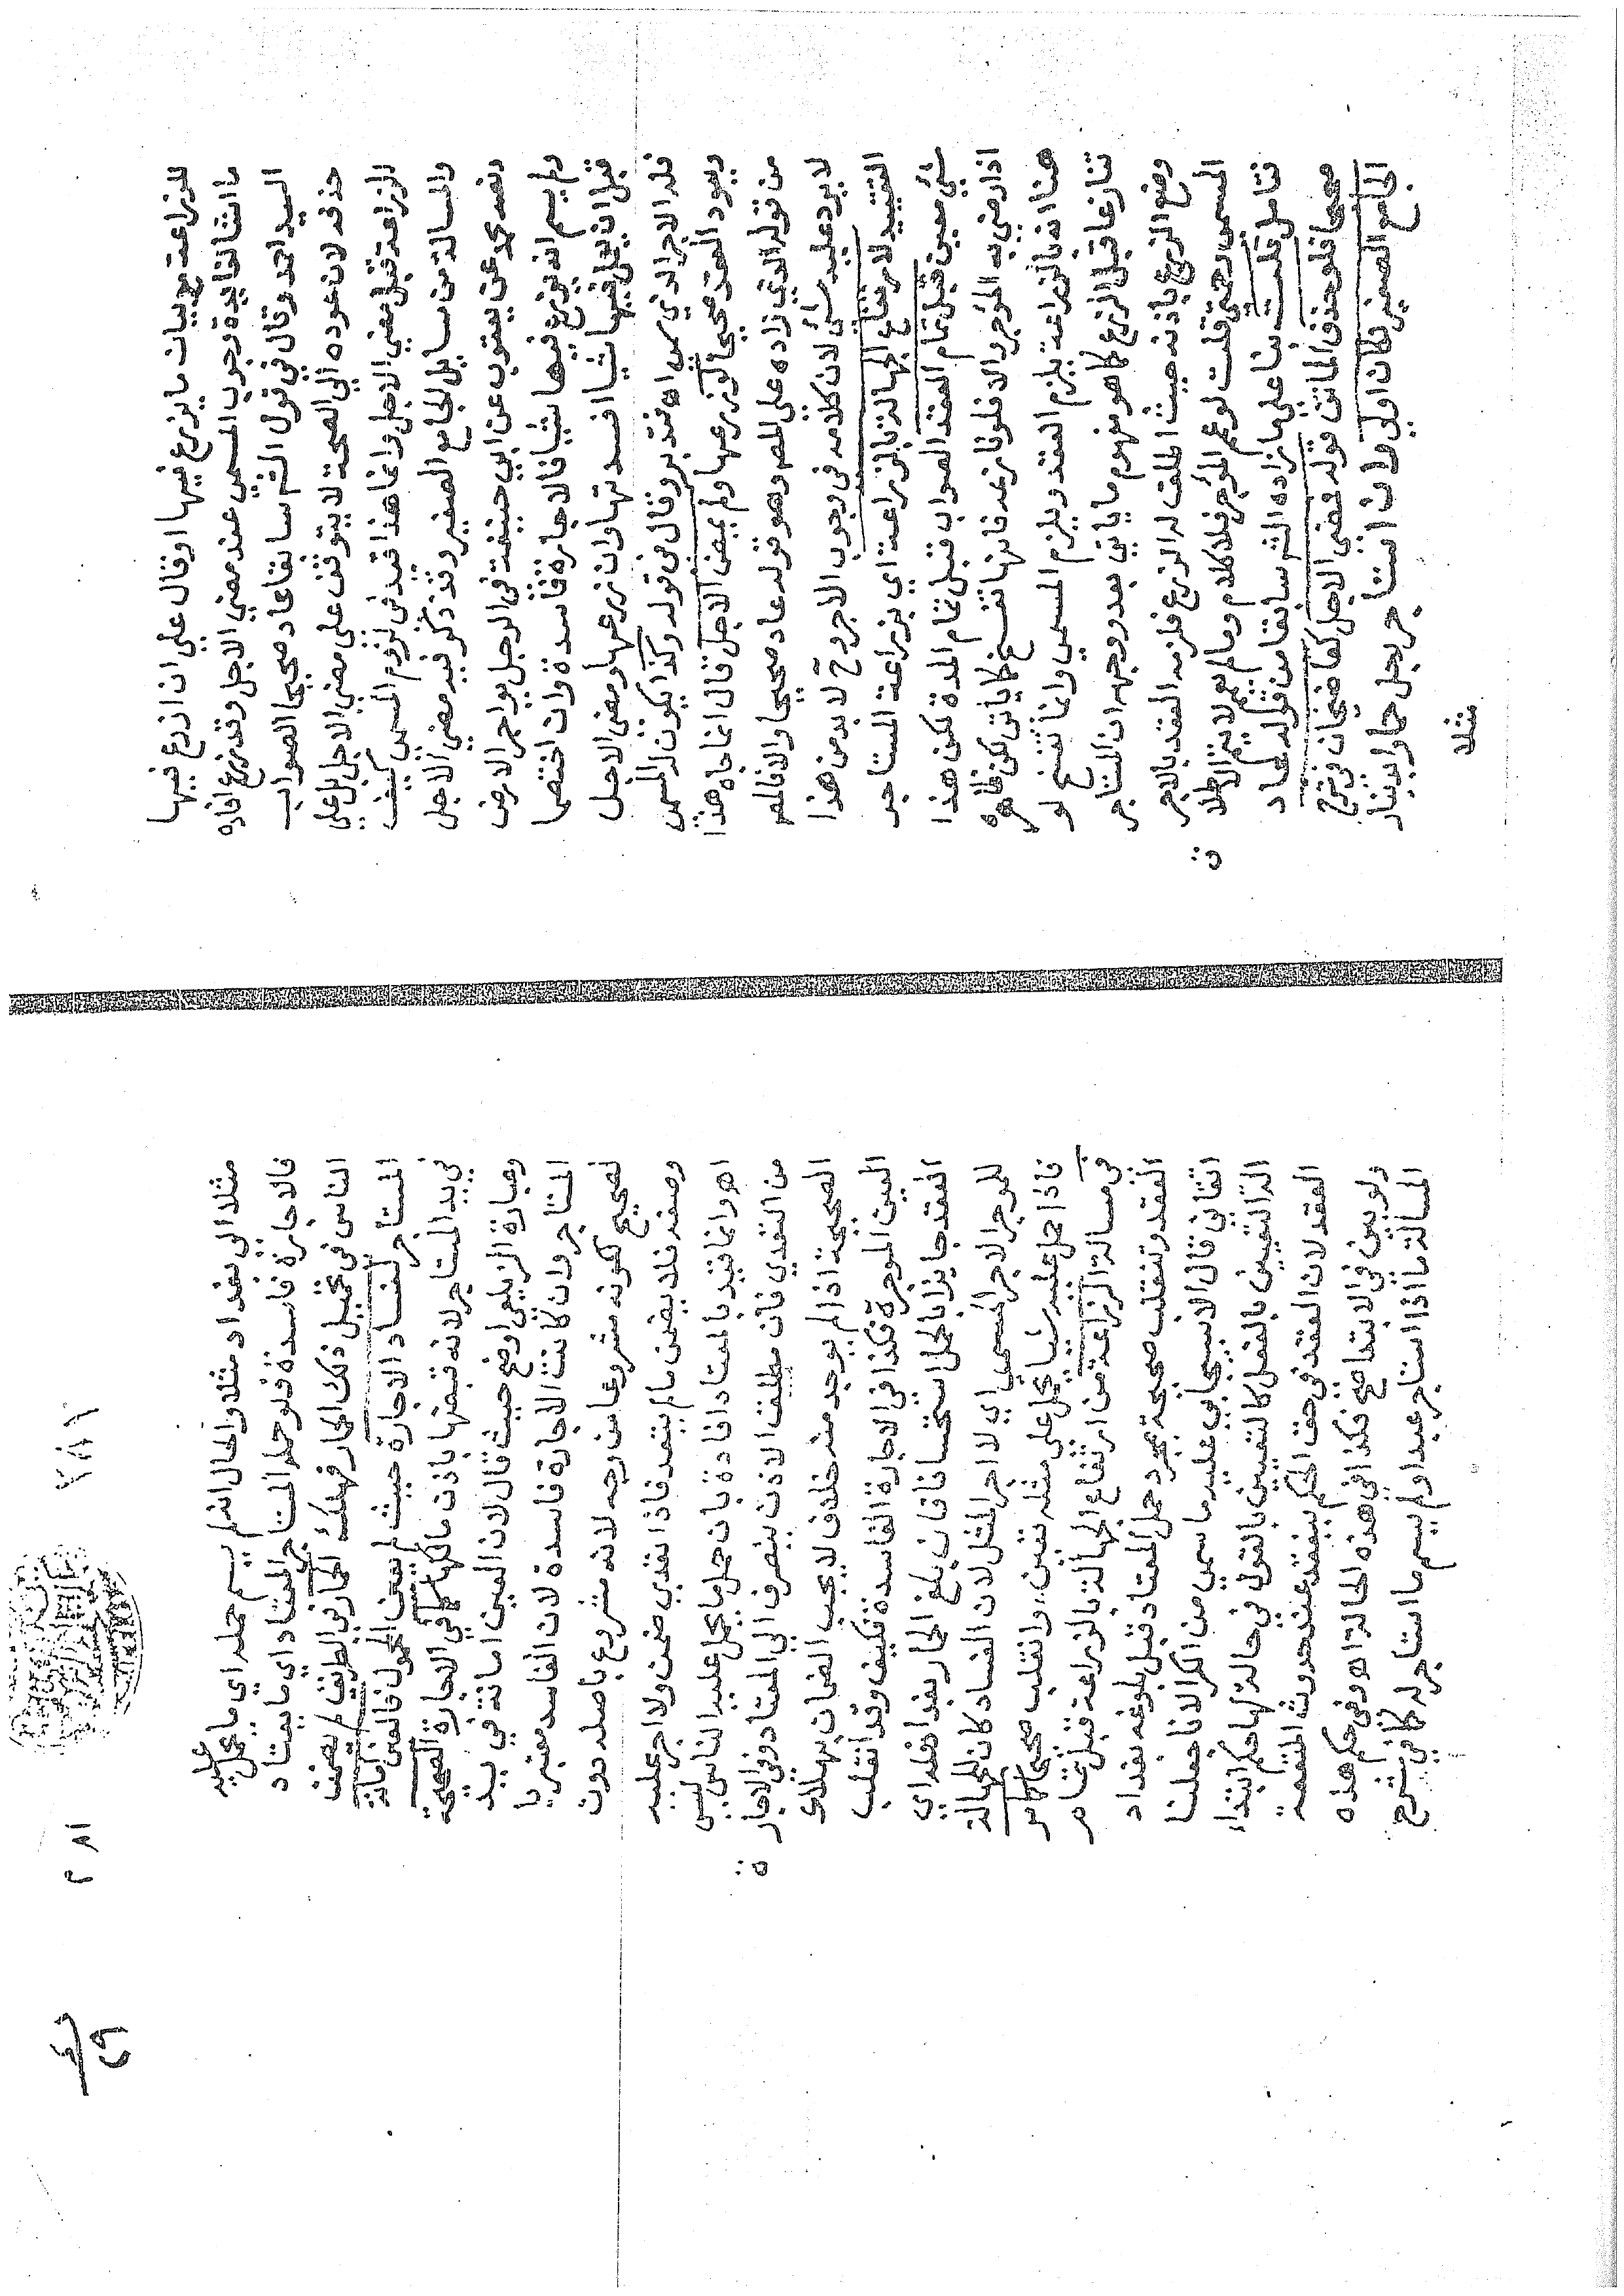 للزراعة مع بيان ما يزرع فيها او قال على ان ازرع فيها
ما اشا لفايدة وجوب المسمى عند مضي الاجل وقد زرع افاده
السيد احمد وقال في قول الشر سابقا عاد صحيحا الصواب
حذفه لان عوده الى الصحة لا يتوقف على مضي الاجل بل على
الزراعة قبل مضي الاجل وانما هذا قيد في لزوم المسمى كيف
والمسالة من مسايل الجامع الصغير وقد ذكر فيه مضي الاجل
ونصه محمد عن يعقوب عن ابي حنيفة في الرجل يواجر الارض
ولم يسم انه يزرع فيها شيا فالاجارة فاسدة وان اختصما
قبل ان يعمل فيها شيا افسدتها وان زرعها ومضى الاجل
فله الاجر الذي سمى اه فتدبر وقال في قوله وكذا يكون له المسمى
ويعود العقد صحيحا لو زرعها ولم يمض الاجل قال انما جاه هذا
من قوله الذي زاده على المص وهو قوله عاد صحيحا والا فالمص
لا يرد عليه شي لان كلامه في وجوب الاجر وح لا بد من هذا
التقييد لارتفاع الجهالة بالزراعة اي بزراعة المستاجر
شي معين قبل تمام العقد الصواب قبل تمام المدة لكن هذا
اذا رضي به المؤجر والا فلو نازعه فانها تفسخ كما ياتي لكن ظاهره
هنا انه بالزراعة يلزم العقد ويلزم المسمى وانما تفسخ لو
تنازعا قبل الزرع كما هو مفهوم ما ياتي بعد ووجهه ان المستاجر
وضع الزرع باذنه حيث اطلق له الزرع فلزمه العقد بالاجر
المسمى رحمتي قلت لو علم المؤجر فلا كلام وما لم يعلم لا يتم الاطلاق
فتامل قلت بنا على ما زاده الشر سابقا من قوله لعاد
صحيحا فلو حذف الماتن قوله فمضى الاجل كقاضيخان في شرح
الجامع الصغير لكان اولى وان استاجر رجل حمارا بدينار
مثلا
٢٨١
٢٨١
مثلا الى بغداد مثلا والحال انه لم يسم حمله اي ما يحمل عليه
فالاجارة فاسدة فلو حمله المستاجر المعتاد اي ما يعتاد
الناس في تحميل ذلك الحمار فهلك الحمار في الطريق لم يضمن
المستاجر لفساد الاجارة حيث لم يعين المحمول فالعين امانة
في يد المستاجر لانه قبضها باذن مالكها كما في الاجارة الصحيحة
وعبارة الزيلعي اوضح حيث قال لان العين امانة في يد
المستاجر وان كانت الاجارة فاسدة لان الفاسد معتبر با
لصحيح لكونه مشروعا من وجه لانه مشروع باصله دون
وصفه فلا يضمن ما لم يتعد فاذا تعدى ضمن ولا اجر عليه
اه وانما قيد بالمعتاد افادة بان حمل ما يحمل عليه الناس ليس
من التعدي فان مطلق الاذن ينصرف الى المعتاد وفي الاجار
الصحيحة اذا لم يوجد منه خلاف لا يجب الضمان بهلاك
العين الموجرة فكذا في الاجارة الفاسدة فكيف وقد انقلب
العقد جايزا بالحمل استحسانا فان بلغ الحمار بغداد فله اي
للموجر الاجر المسمى اي لا اجر المثل لان الفساد كان لجهالة
فاذا حمل عليه شيا يحمل على مثله تعين وانقلب صحيحا كما مر
في مسالة الزراعة من ارتفاع الجهالة بالزراعة قبل تمام
العقد وتنقلب صحيحة بمجرد حمل المعتاد قبل بلوغه بغداد
اتقاني قال الاسبيجابي عليه ما سمى من الكرا لانا جعلنا
التعيين بالفعل كالتعيين بالقول في حالة لها حكم ابتداء
العقد لان العقد في حق الحكم ينعقد عند حدوث المنفعة
ولو بين في الابتدا صح فكذا في هذه الحالة اه وفي حكم هذه
المسالة ما اذا استاجر عبدا ولم يسم ما استاجره له كما في شرح